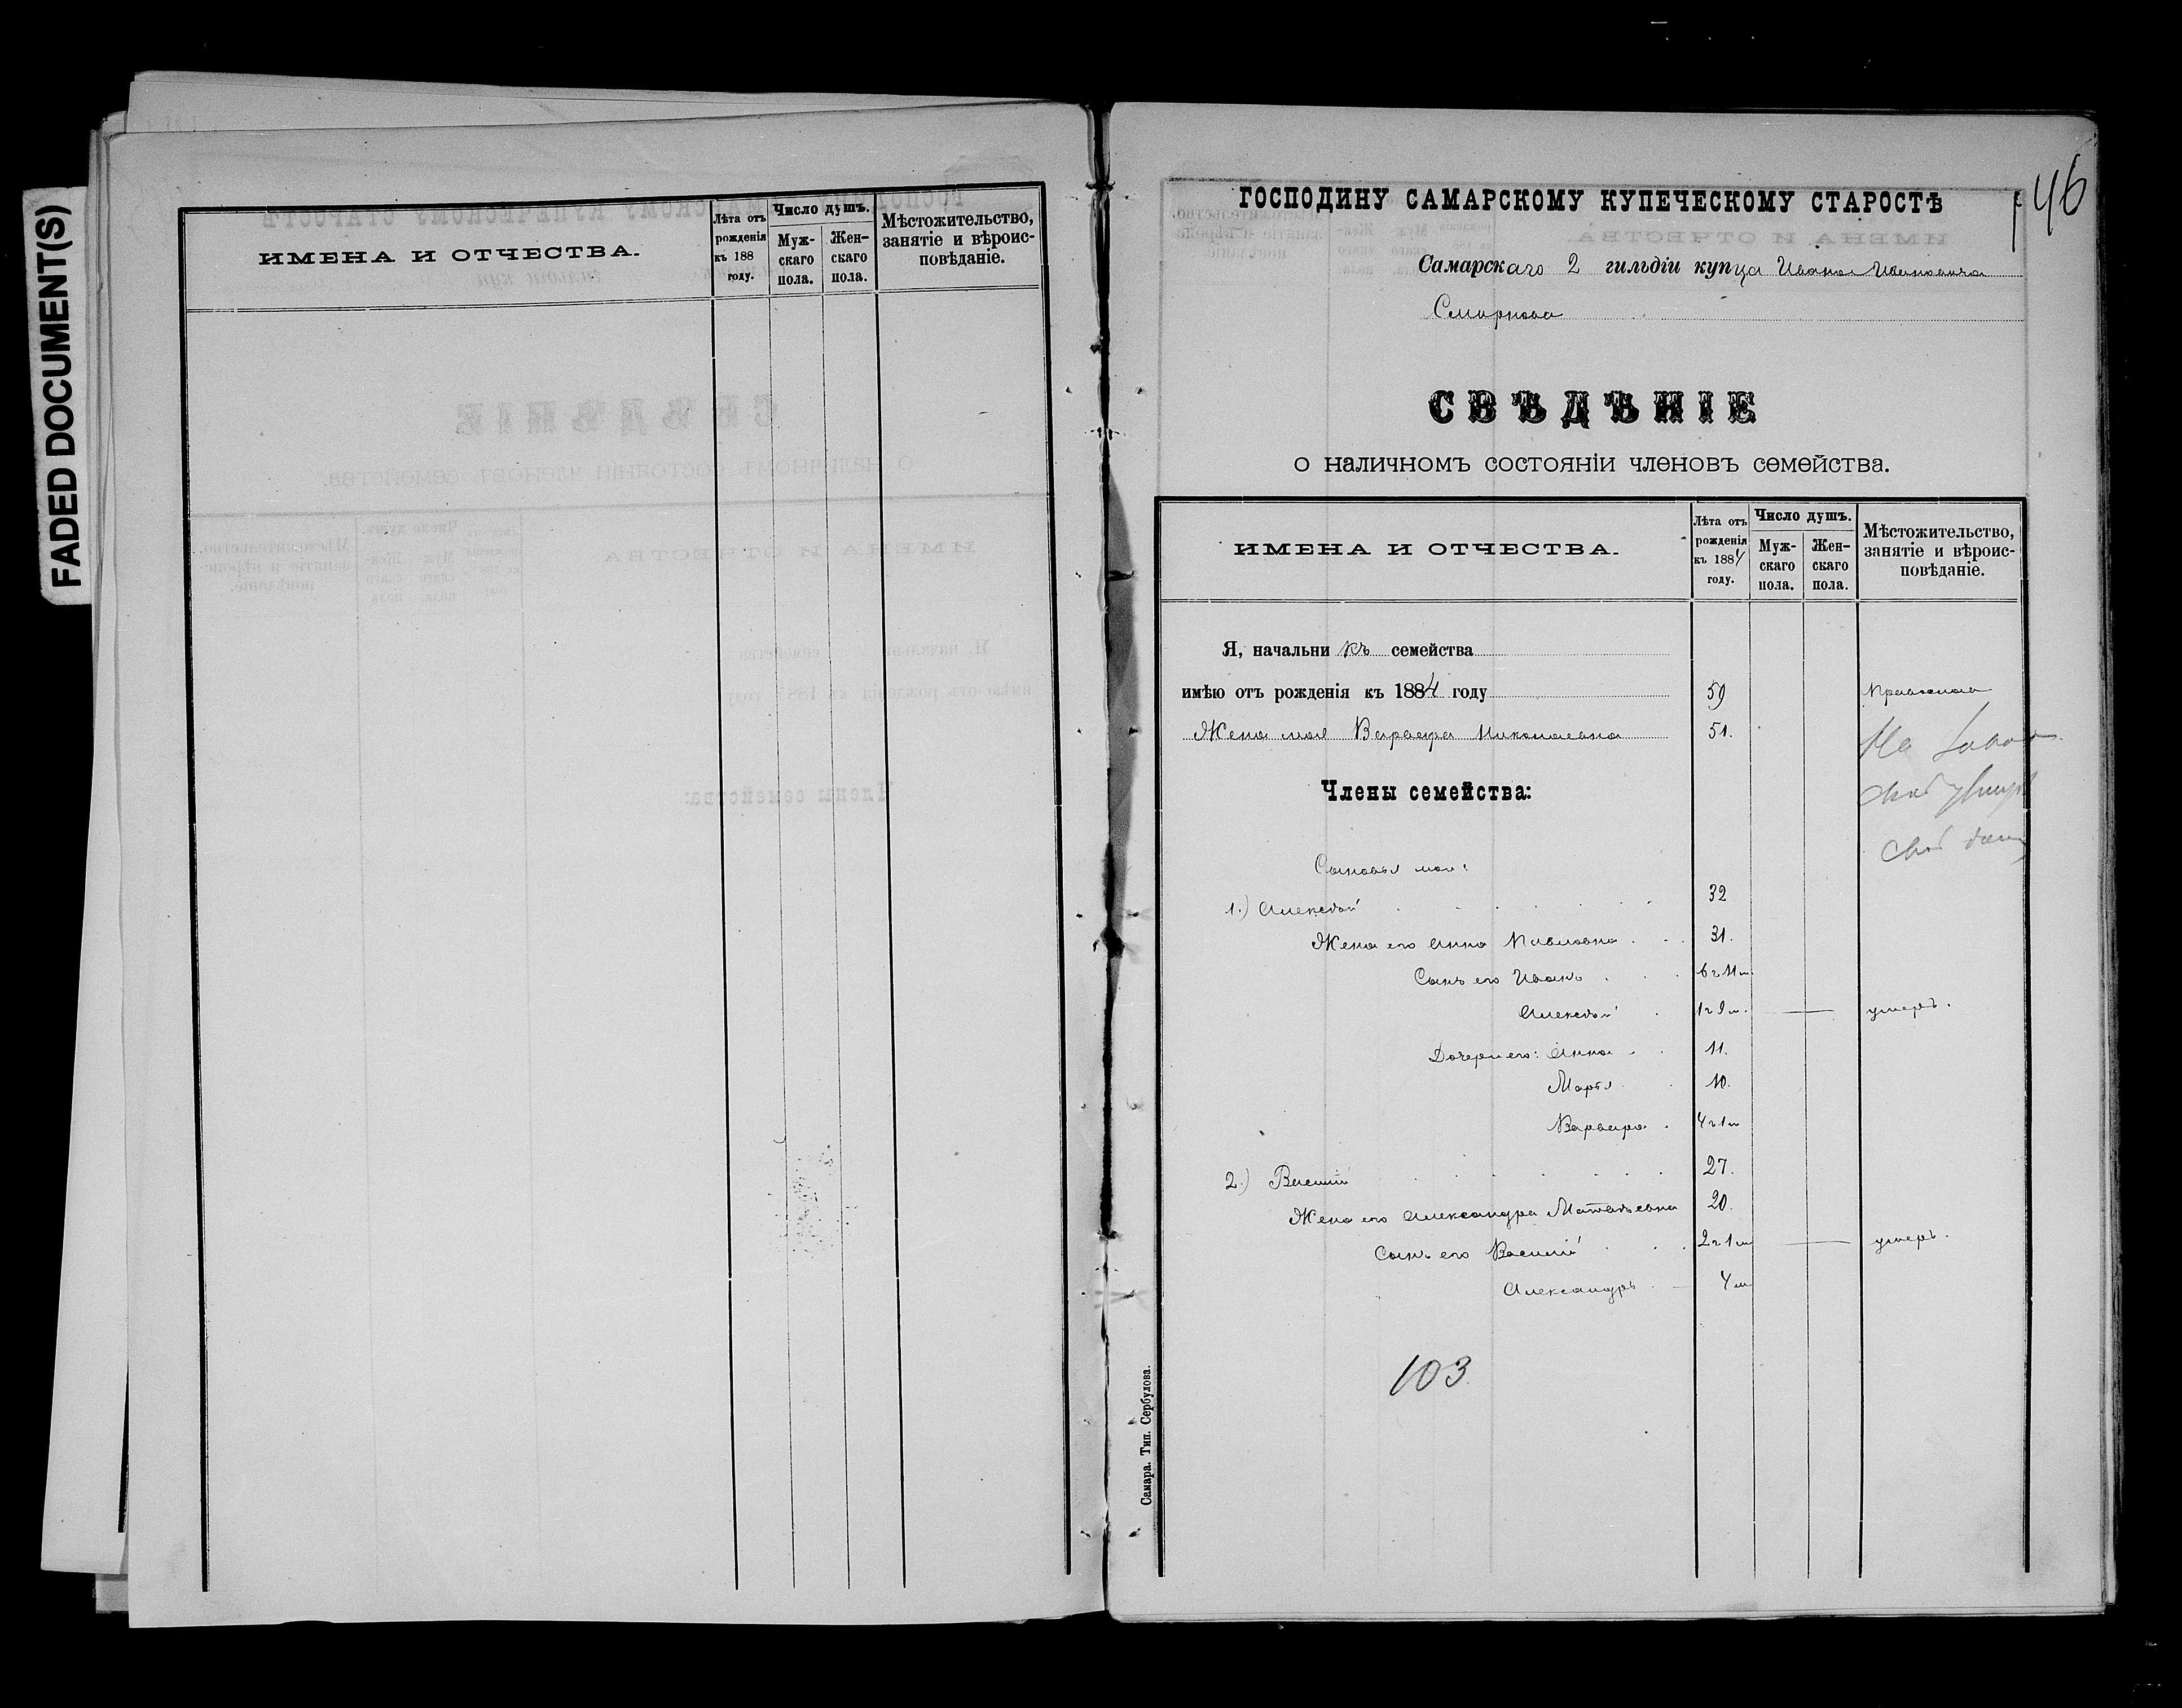 FADED DOCUMENT(S)
ИМЕНА И ОТЧЕСТВА.
Лѣта отъ рожденія къ 188 году.
Число душъ.
Мужскаго пола.
Женскаго пола.
Мѣстожительство, занятіе и вѣроисповѣданіе.
46
ГОСПОДИНУ САМАРСКОМУ КУПЕЧЕСКОМУ СТАРОСТѢ
Самарскаго 2 гильдіи купца Ивана Ивановича
Смирнова
СВѢДѢНІЕ
о наличномъ состояніи членовъ семейства.
ИМЕНА И ОТЧЕСТВА.
Лѣта отъ рожденія къ 1884 году.
Число душъ.
Мужскаго пола.
Женскаго пола.
Мѣстожительство, занятіе и вѣроисповѣданіе.
Я, начальникъ семейства
имѣю отъ рожденія къ 1884 году 59
Жена моя Варвара Николаевна 51.
Члены семейства:
Сыновья мои:
1.) Алексѣй 32
Жена его Анна Павловна 31.
Сынъ его Иванъ 6 г 11 м
Алексѣй 1 г 9 м. — умеръ.
Дочери его: Анна 11.
Марья 10.
Варвара 4 г 1 м
2.) Василій 27.
Жена его Александра Матвѣевна 20.
Сынъ его Василій 2 г 1 м — умеръ.
Александръ 4 м
103
Самара. Тип. Сербулова.